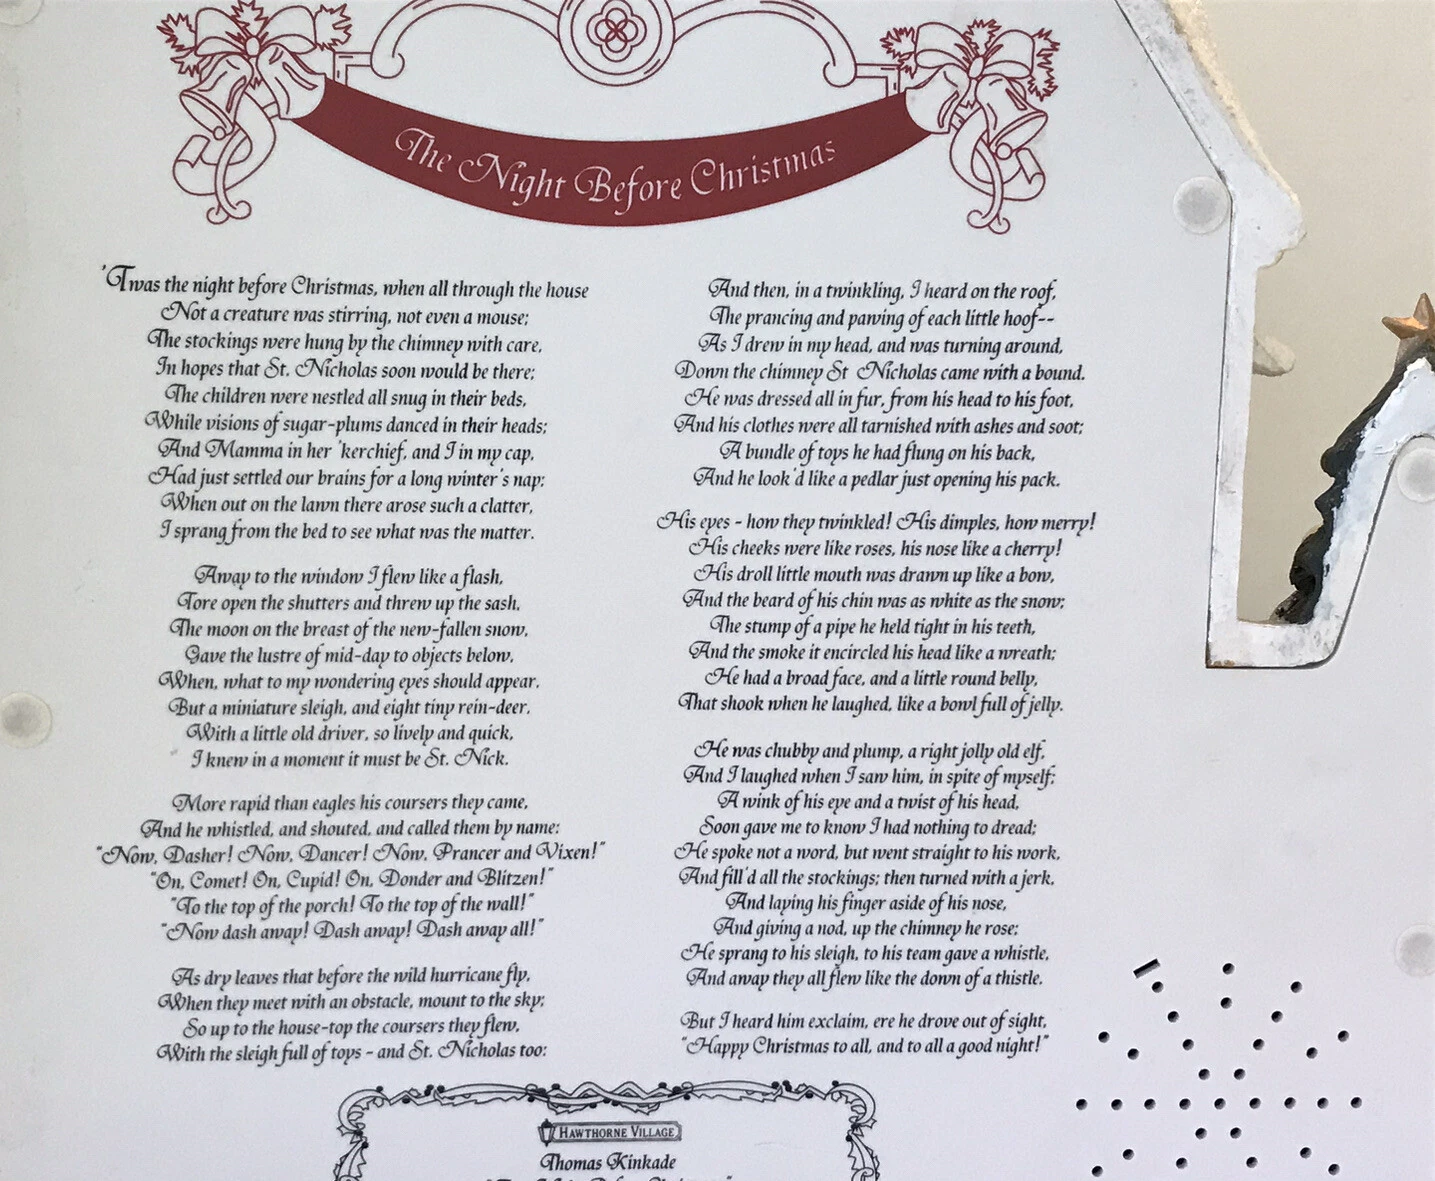 The Night Before Christmas
'Twas the night before Christmas, when all through the house
Not a creature was stirring, not even a mouse;
The stockings were hung by the chimney with care,
In hopes that St. Nicholas soon would be there;
The children were nestled all snug in their beds,
While visions of sugar-plums danced in their heads;
And Mamma in her 'kerchief, and I in my cap,
Had just settled our brains for a long winter's nap;
When out on the lawn there arose such a clatter,
I sprang from the bed to see what was the matter.
Away to the window I flew like a flash,
Tore open the shutters and threw up the sash,
The moon on the breast of the new-fallen snow,
Gave the lustre of mid-day to objects below,
When, what to my wondering eyes should appear,
But a miniature sleigh, and eight tiny rein-deer,
With a little old driver, so lively and quick,
I knew in a moment it must be St. Nick.
More rapid than eagles his coursers they came,
And he whistled, and shouted, and called them by name:
"Now, Dasher! Now, Dancer! Now, Prancer and Vixen!"
"On, Comet! On, Cupid! On, Donder and Blitzen!"
"To the top of the porch! To the top of the wall!"
"Now dash away! Dash away! Dash away all!"
As dry leaves that before the wild hurricane fly,
When they meet with an obstacle, mount to the sky;
So up to the house-top the coursers they flew,
With the sleigh full of toys - and St. Nicholas too:
And then, in a twinkling, I heard on the roof,
The prancing and pawing of each little hoof--
As I drew in my head, and was turning around,
Down the chimney St Nicholas came with a bound.
He was dressed all in fur, from his head to his foot,
And his clothes were all tarnished with ashes and soot;
A bundle of toys he had flung on his back,
And he look'd like a pedlar just opening his pack.
His eyes - how they twinkled! His dimples, how merry!
His cheeks were like roses, his nose like a cherry!
His droll little mouth was drawn up like a bow,
And the beard of his chin was as white as the snow;
The stump of a pipe he held tight in his teeth,
And the smoke it encircled his head like a wreath;
He had a broad face, and a little round belly,
That shook when he laughed, like a bowl full of jelly.
He was chubby and plump, a right jolly old elf,
And I laughed when I saw him, in spite of myself;
A wink of his eye and a twist of his head,
Soon gave me to know I had nothing to dread;
He spoke not a word, but went straight to his work,
And fill'd all the stockings; then turned with a jerk,
And laying his finger aside of his nose,
And giving a nod, up the chimney he rose;
He sprang to his sleigh, to his team gave a whistle,
And away they all flew like the down of a thistle.
But I heard him exclaim, ere he drove out of sight,
"Happy Christmas to all, and to all a good night!"
HAWTHORNE VILLAGE
Thomas Kinkade